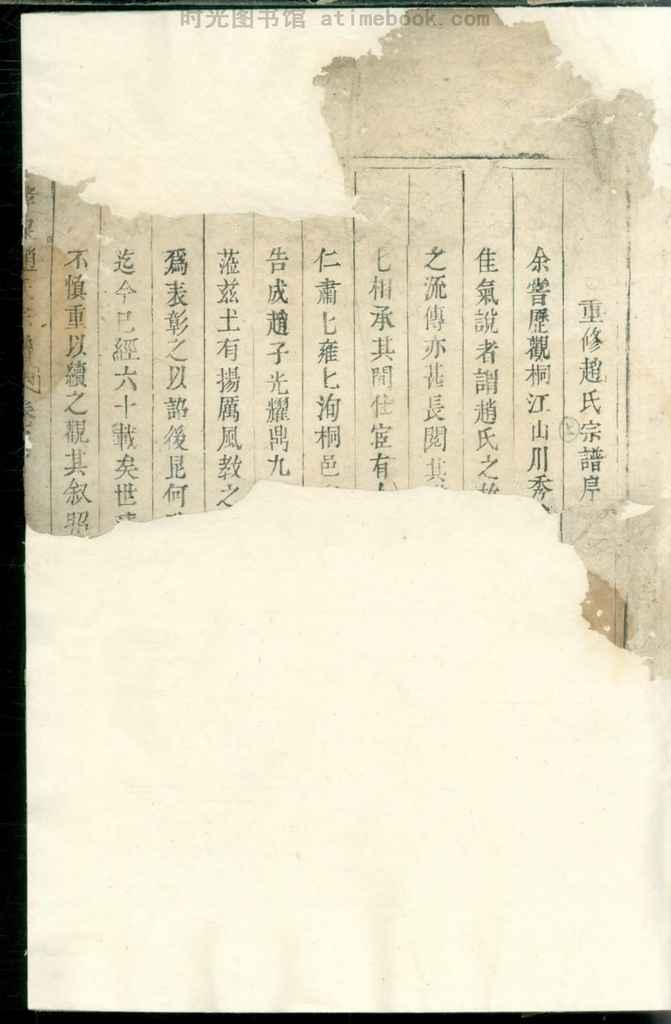 时光图书馆 atimebook.com
重修趙氏宗譜序
余嘗歷觀桐江山川秀
佳氣說者謂趙氏之
之流傳亦甚長閱其
七相承其間仕宦有
仁肅七雍七洵桐邑
告成趙子光耀鼎九
蒞兹土有揚厲風教之
爲表彰之以詔後昆何
迄今已經六十載矣世
不慎重以續之觀其叙照
趙氏宗譜